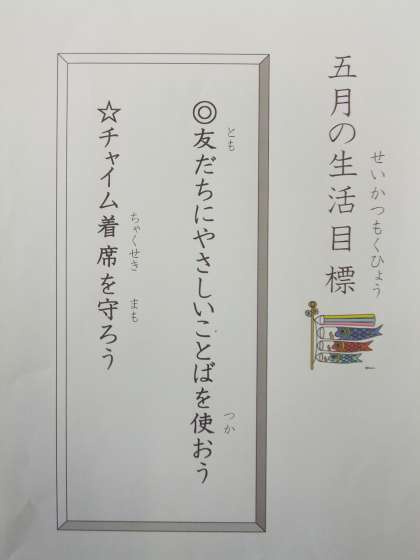 五月の生活目標
せいかつもくひょう
◎友だちにやさしいことばを使おう
とも
つか
☆チャイム着席を守ろう
ちゃくせき
まも